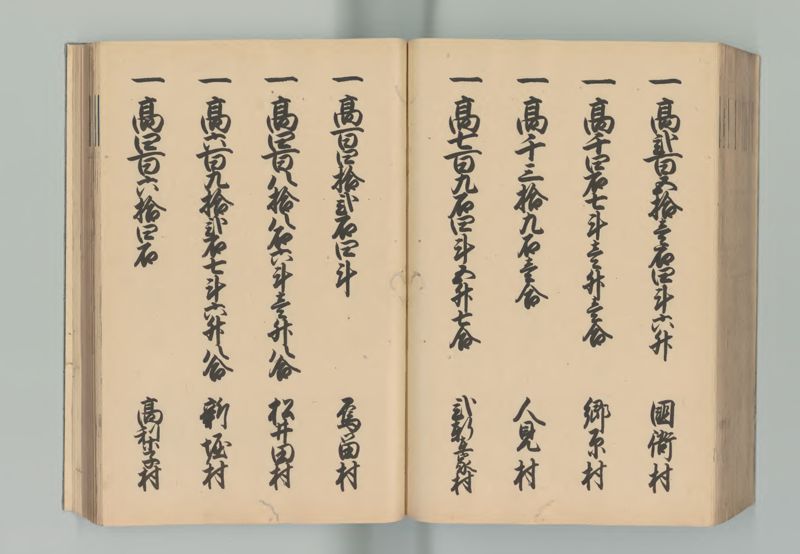 一 高弐百五拾壱石四斗六升 國衙村
一 高千四石七斗壱升壱合 郷原村
一 高千三拾九石壱合 人見村
一 高七百九石四斗五升七合 村
一 高百四拾弐石四斗 村
一 高四百八拾八石六斗壱升八合 松井田村
一 高六百九拾弐石七斗六升八合 新堀村
一 高四百六拾四石 高梨子村